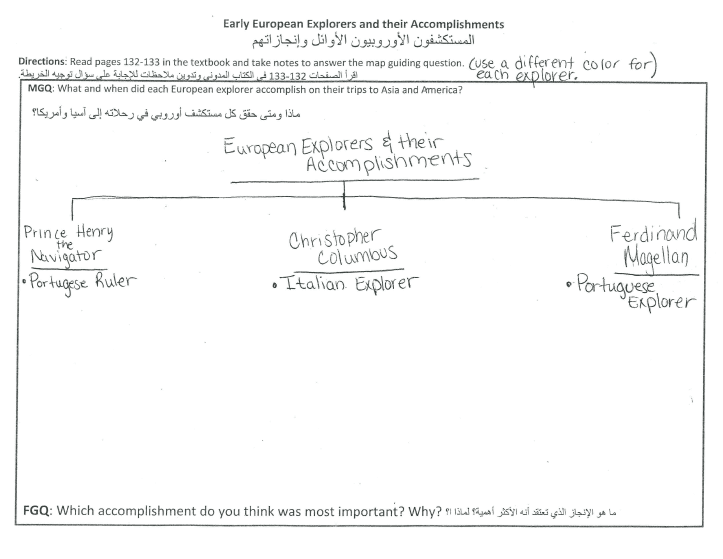 Early European Explorers and their Accomplishments
المستكشفون الأوروبيون الأوائل وإنجازاتهم
Directions: Read pages 132-133 in the textbook and take notes to answer the map guiding question. (use a different color for)
اقرأ الصفحات 132-133 في الكتاب المدوني وتدوين ملاحظات للإجابة على سؤال توجيه الخريطة. each explorer.
MGQ: What and when did each European explorer accomplish on their trips to Asia and America?
ماذا ومتى حقق كل مستكشف أوروبي في رحلاته إلى آسيا وأمريكا؟
European Explorers & their
Accomplishments
Prince Henry
the
Navigator
• Portugese Ruler
Christopher
Columbus
• Italian Explorer
Ferdinand
Magellan
• Portuguese
Explorer
FGQ: Which accomplishment do you think was most important? Why? ما هو الإنجاز الذي تعتقد أنه الأكثر أهمية؟ لماذا ا؟